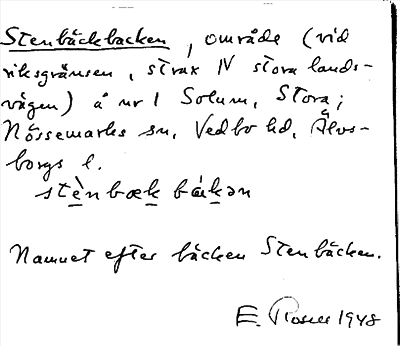 Stenbäckbacken, område (vid
riksgränsen, strax N stora lands-
vägen) å nr 1 Solum, Stora;
Nössemarks sn, Vedbo hd, Älvs-
borgs l.
stènbæk bákən
Namnet efter bäcken Stenbäcken.
E. 1948